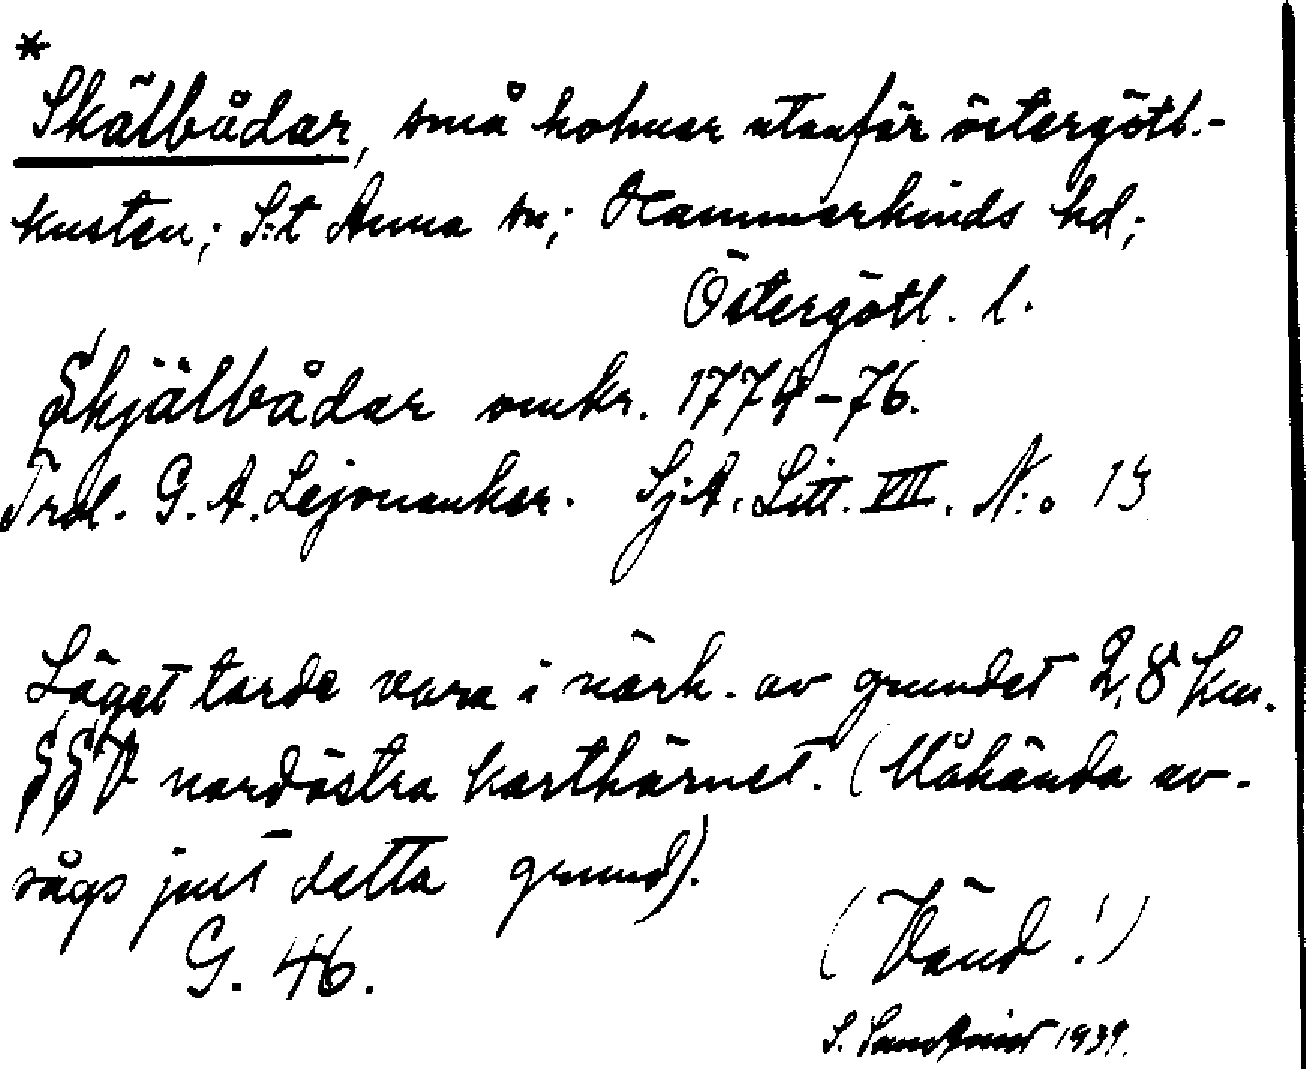 *
Skälbådar, små holmar utanför östergötl.-
kusten; S:t Anna sn; Hammarkinds hd;
Östergötl. l.
Skjälbådar omkr. 1774-76.
Trol. G. A. Lejonanker. Sj.A. Litt. VII. N:o 13
Läget torde vara i närh. av grundet 2,8 km.
SSV nordöstra karthörnet. (Måhända av-
sågs just detta grund).
G. 46.
(Vänd!)
S. 1939.